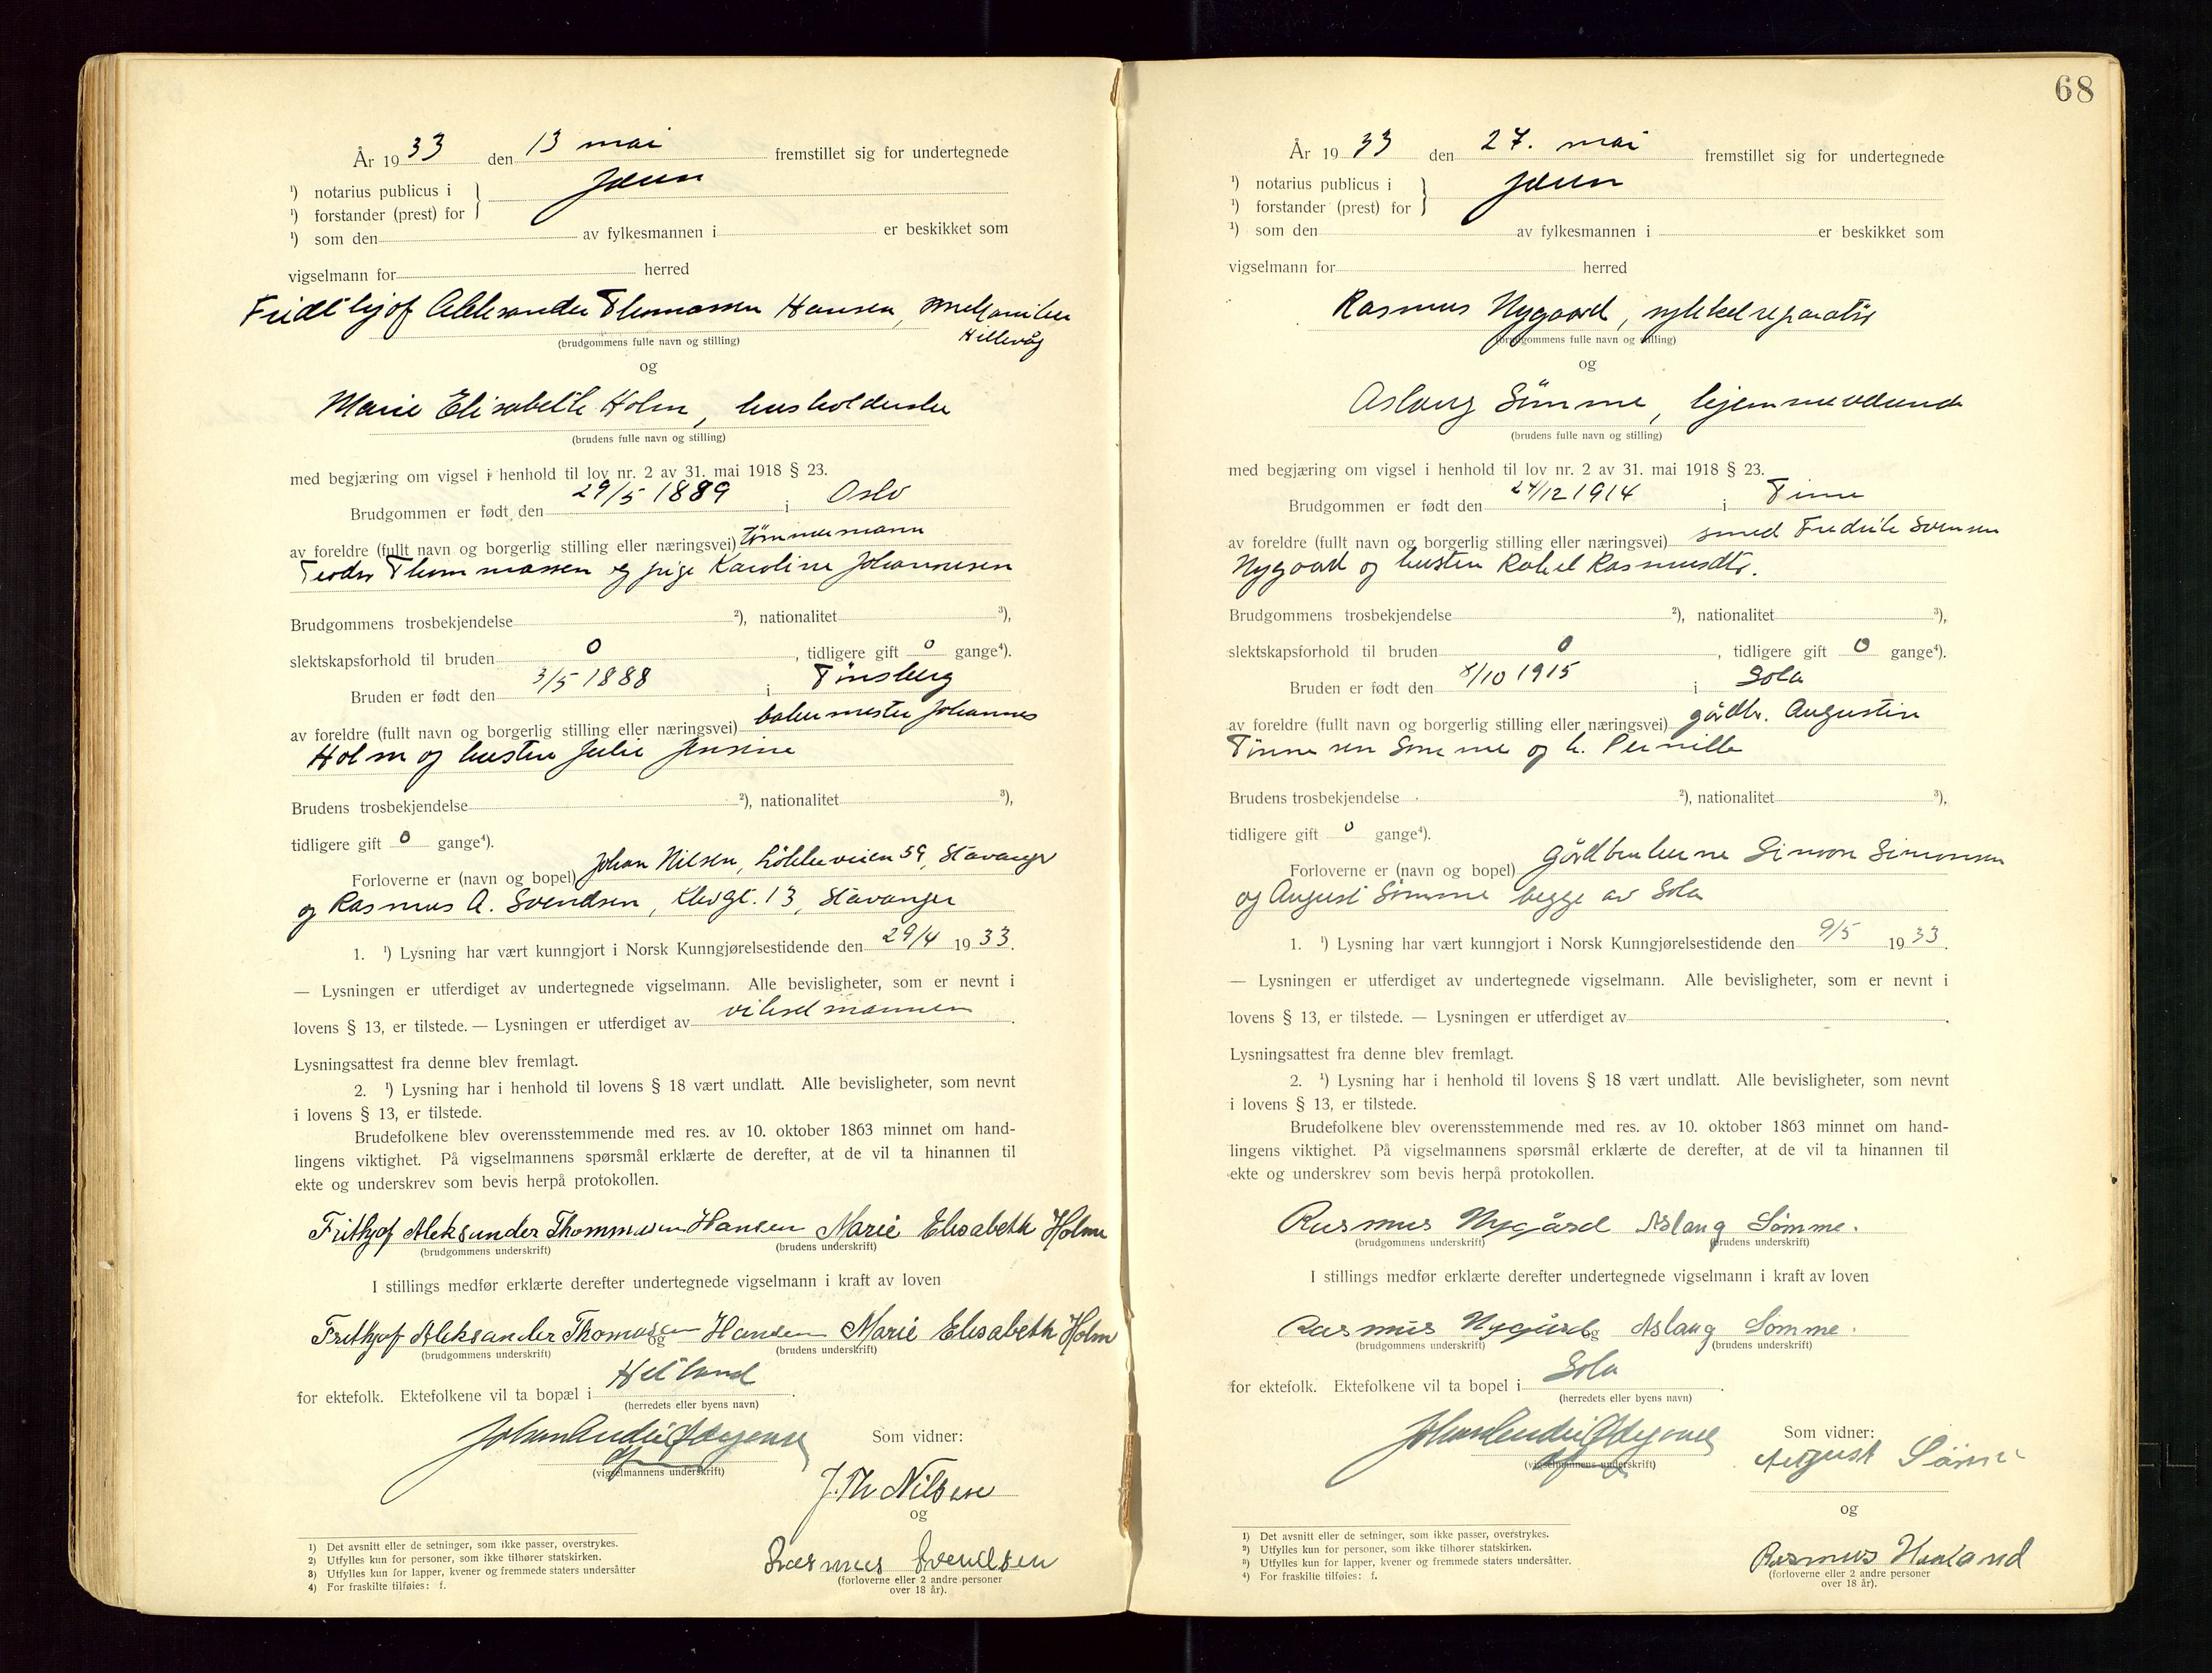 År 1933 den 13 mai fremstillet sig for undertegnede
¹) notarius publicus i } Jæren
¹) forstander (prest) for
¹) som den av fylkesmannen i er beskikket som
vigselmann for herred
Fridthjof Aleksander Thomassen Hansen, mekaniker
Hillevåg
(brudgommens fulle navn og stilling)
og
Marie Elisabeth Holm, husholderske
(brudens fulle navn og stilling)
med begjæring om vigsel i henhold til lov nr. 2 av 31. mai 1918 § 23.
Brudgommen er født den 29/5 1889 i Oslo
av foreldre (fullt navn og borgerlig stilling eller næringsvei) tømmermann
Teodor Thommassen og pige Karoline Johannesen
Brudgommens trosbekjendelse ²), nationalitet ³),
slektskapsforhold til bruden 0, tidligere gift 0 gange⁴).
Bruden er født den 3/5 1888 i Tønsberg
av foreldre (fullt navn og borgerlig stilling eller næringsvei) bakermester Johannes
Holm og hustru Julie Jensine
Brudens trosbekjendelse ²), nationalitet ³),
tidligere gift 0 gange⁴).
Forloverne er (navn og bopel) Johan Nilsen, Løkkeveien 59, Stavanger
og Rasmus A. Svendsen, 13, Stavanger
1. ¹) Lysning har vært kunngjort i Norsk Kunngjørelsestidende den 29/4 1933.
— Lysningen er utferdiget av undertegnede vigselmann. Alle bevisligheter, som er nevnt i
lovens § 13, er tilstede. — Lysningen er utferdiget av vikselmannen.
Lysningsattest fra denne blev fremlagt.
2. ¹) Lysning har i henhold til lovens § 18 vært undlatt. Alle bevisligheter, som nevnt
i lovens § 13, er tilstede.
Brudefolkene blev overensstemmende med res. av 10. oktober 1863 minnet om hand-
lingens viktighet. På vigselmannens spørsmål erklærte de derefter, at de vil ta hinannen til
ekte og underskrev som bevis herpå protokollen.
Frithjof Aleksander Thommasen Hansen Marie Elisabeth Holm
(brudgommens underskrift) (brudens underskrift)
I stillings medfør erklærte derefter undertegnede vigselmann i kraft av loven
Frithjof Aleksander Thomasen og Hansen Marie Elisabeth Holm
(brudgommens underskrift) (brudens underskrift)
for ektefolk. Ektefolkene vil ta bopæl i Hetland.
(herredets eller byens navn)
(vigselmannens underskrift)
Som vidner:
J. Th Nilsen
og
Rasmus Svendsen
(forloverne eller 2 andre personer
over 18 år).
1) Det avsnitt eller de setninger, som ikke passer, overstrykes.
2) Utfylles kun for personer, som ikke tilhører statskirken.
3) Utfylles kun for lapper, kvener og fremmede staters undersåtter
4) For fraskilte tilføies: f.
68
År 1933 den 27. mai fremstillet sig for undertegnede
¹) notarius publicus i } Jæren
¹) forstander (prest) for
¹) som den av fylkesmannen i er beskikket som
vigselmann for herred
Rasmus Nygaard, sykkelreparatør
(brudgommens fulle navn og stilling)
og
Aslaug Sømme, hjemmeværende
(brudens fulle navn og stilling)
med begjæring om vigsel i henhold til lov nr. 2 av 31. mai 1918 § 23.
Brudgommen er født den 24/12 1914 i Time
av foreldre (fullt navn og borgerlig stilling eller næringsvei) smed Fredrik Svensen
Nygaard og hustru Rakel Rasmusdtr.
Brudgommens trosbekjendelse ²), nationalitet ³),
slektskapsforhold til bruden 0, tidligere gift 0 gange⁴).
Bruden er født den 8/10 1915 i Sola
av foreldre (fullt navn og borgerlig stilling eller næringsvei) gårdbr. Augustin
Tønnesen Sømme og h. Pernille
Brudens trosbekjendelse ²), nationalitet ³),
tidligere gift 0 gange⁴).
Forloverne er (navn og bopel) gårdbrukerne Simon Simonsen
og August Sømme begge av Sola
1. ¹) Lysning har vært kunngjort i Norsk Kunngjørelsestidende den 9/5 1933.
— Lysningen er utferdiget av undertegnede vigselmann. Alle bevisligheter, som er nevnt i
lovens § 13, er tilstede. — Lysningen er utferdiget av.
Lysningsattest fra denne blev fremlagt.
2. ¹) Lysning har i henhold til lovens § 18 vært undlatt. Alle bevisligheter, som nevnt
i lovens § 13, er tilstede.
Brudefolkene blev overensstemmende med res. av 10. oktober 1863 minnet om hand-
lingens viktighet. På vigselmannens spørsmål erklærte de derefter, at de vil ta hinannen til
ekte og underskrev som bevis herpå protokollen.
Rasmus Nygård Aslaug Sømme.
(brudgommens underskrift) (brudens underskrift)
I stillings medfør erklærte derefter undertegnede vigselmann i kraft av loven
Rasmus Nygård og Aslaug Sømme.
(brudgommens underskrift) (brudens underskrift)
for ektefolk. Ektefolkene vil ta bopel i Sola.
(herredets eller byens navn)
(vigselmannens underskrift)
Som vidner:
August Sømme
og
Rasmus Haaland
(forloverne eller 2 andre personer
over 18 år).
1) Det avsnitt eller de setninger, som ikke passer, overstrykes.
2) Utfylles kun for personer, som ikke tilhører statskirken.
3) Utfylles kun for lapper, kvener og fremmede staters undersåtter.
4) For fraskilte tilføies: f.